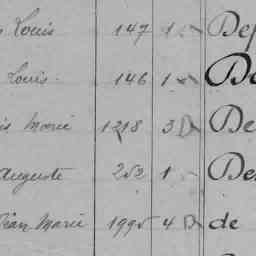 Louis 147 1 Dep
Louis 146 1 De
is Marie 1218 3 De
Auguste 252 1 De
Jean Marie 1995 4 de